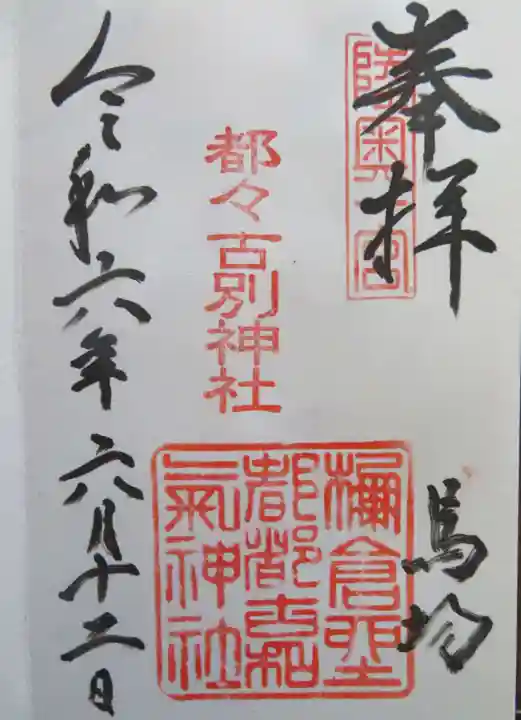 奉拝
陸奥一宮
馬場
都々古別神社
都都古和氣神社
令和六年六月十二日